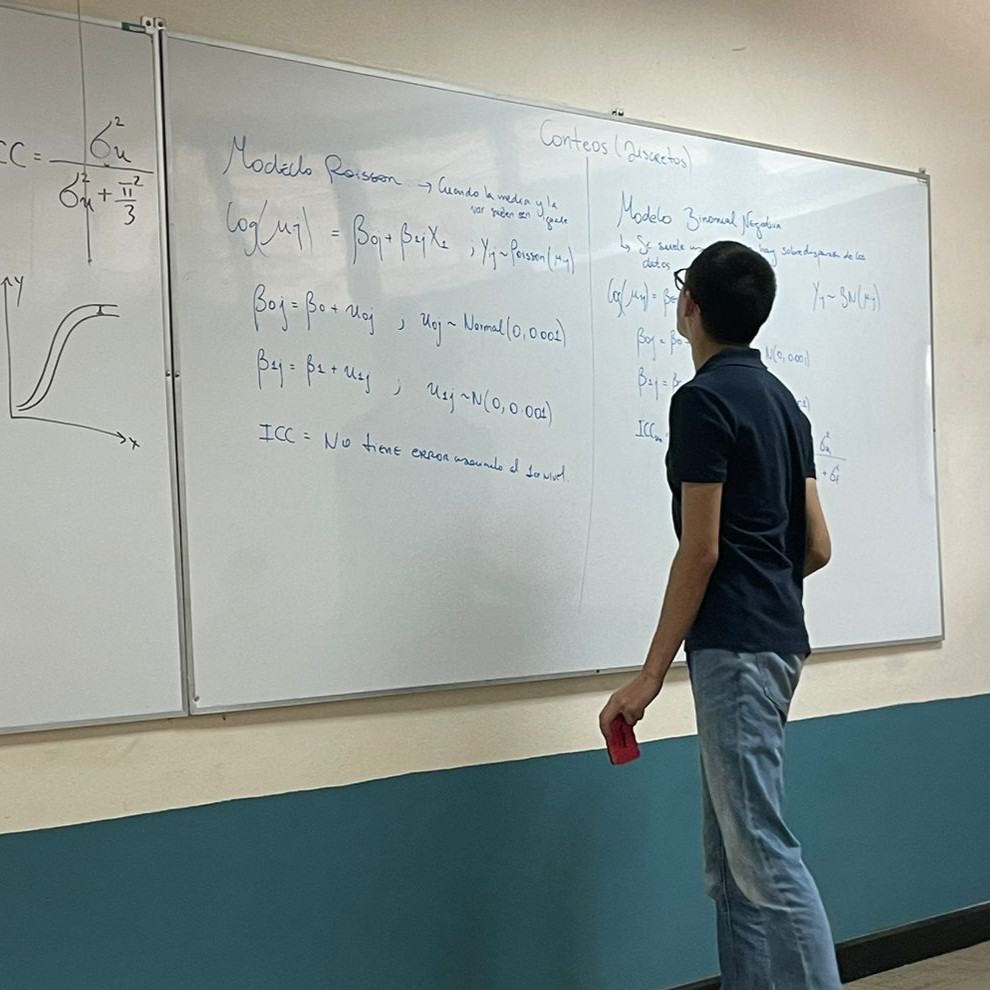 ICC = σ²u / (σ²u + π²/3)
y
x
Conteos (Discretos)
Modelo Poisson → Cuando la media y la
var suelen ser iguale
log(μij) = β0j + β1jX1 ; Yij ~ Poisson(μij)
β0j = β0 + u0j ; u0j ~ Normal(0, 0.001)
β1j = β1 + u1j ; u1j ~ N(0, 0.001)
ICC = No tiene error asociado al 1er nivel.
Modelo Binomial Negativa
↳ Se suele hay sobredispersión de los
datos
log(μij) = β Yij ~ BN(μij)
β0j = β0 N(0, 0.001)
β1j = β
ICC
σ²u
+ σ²